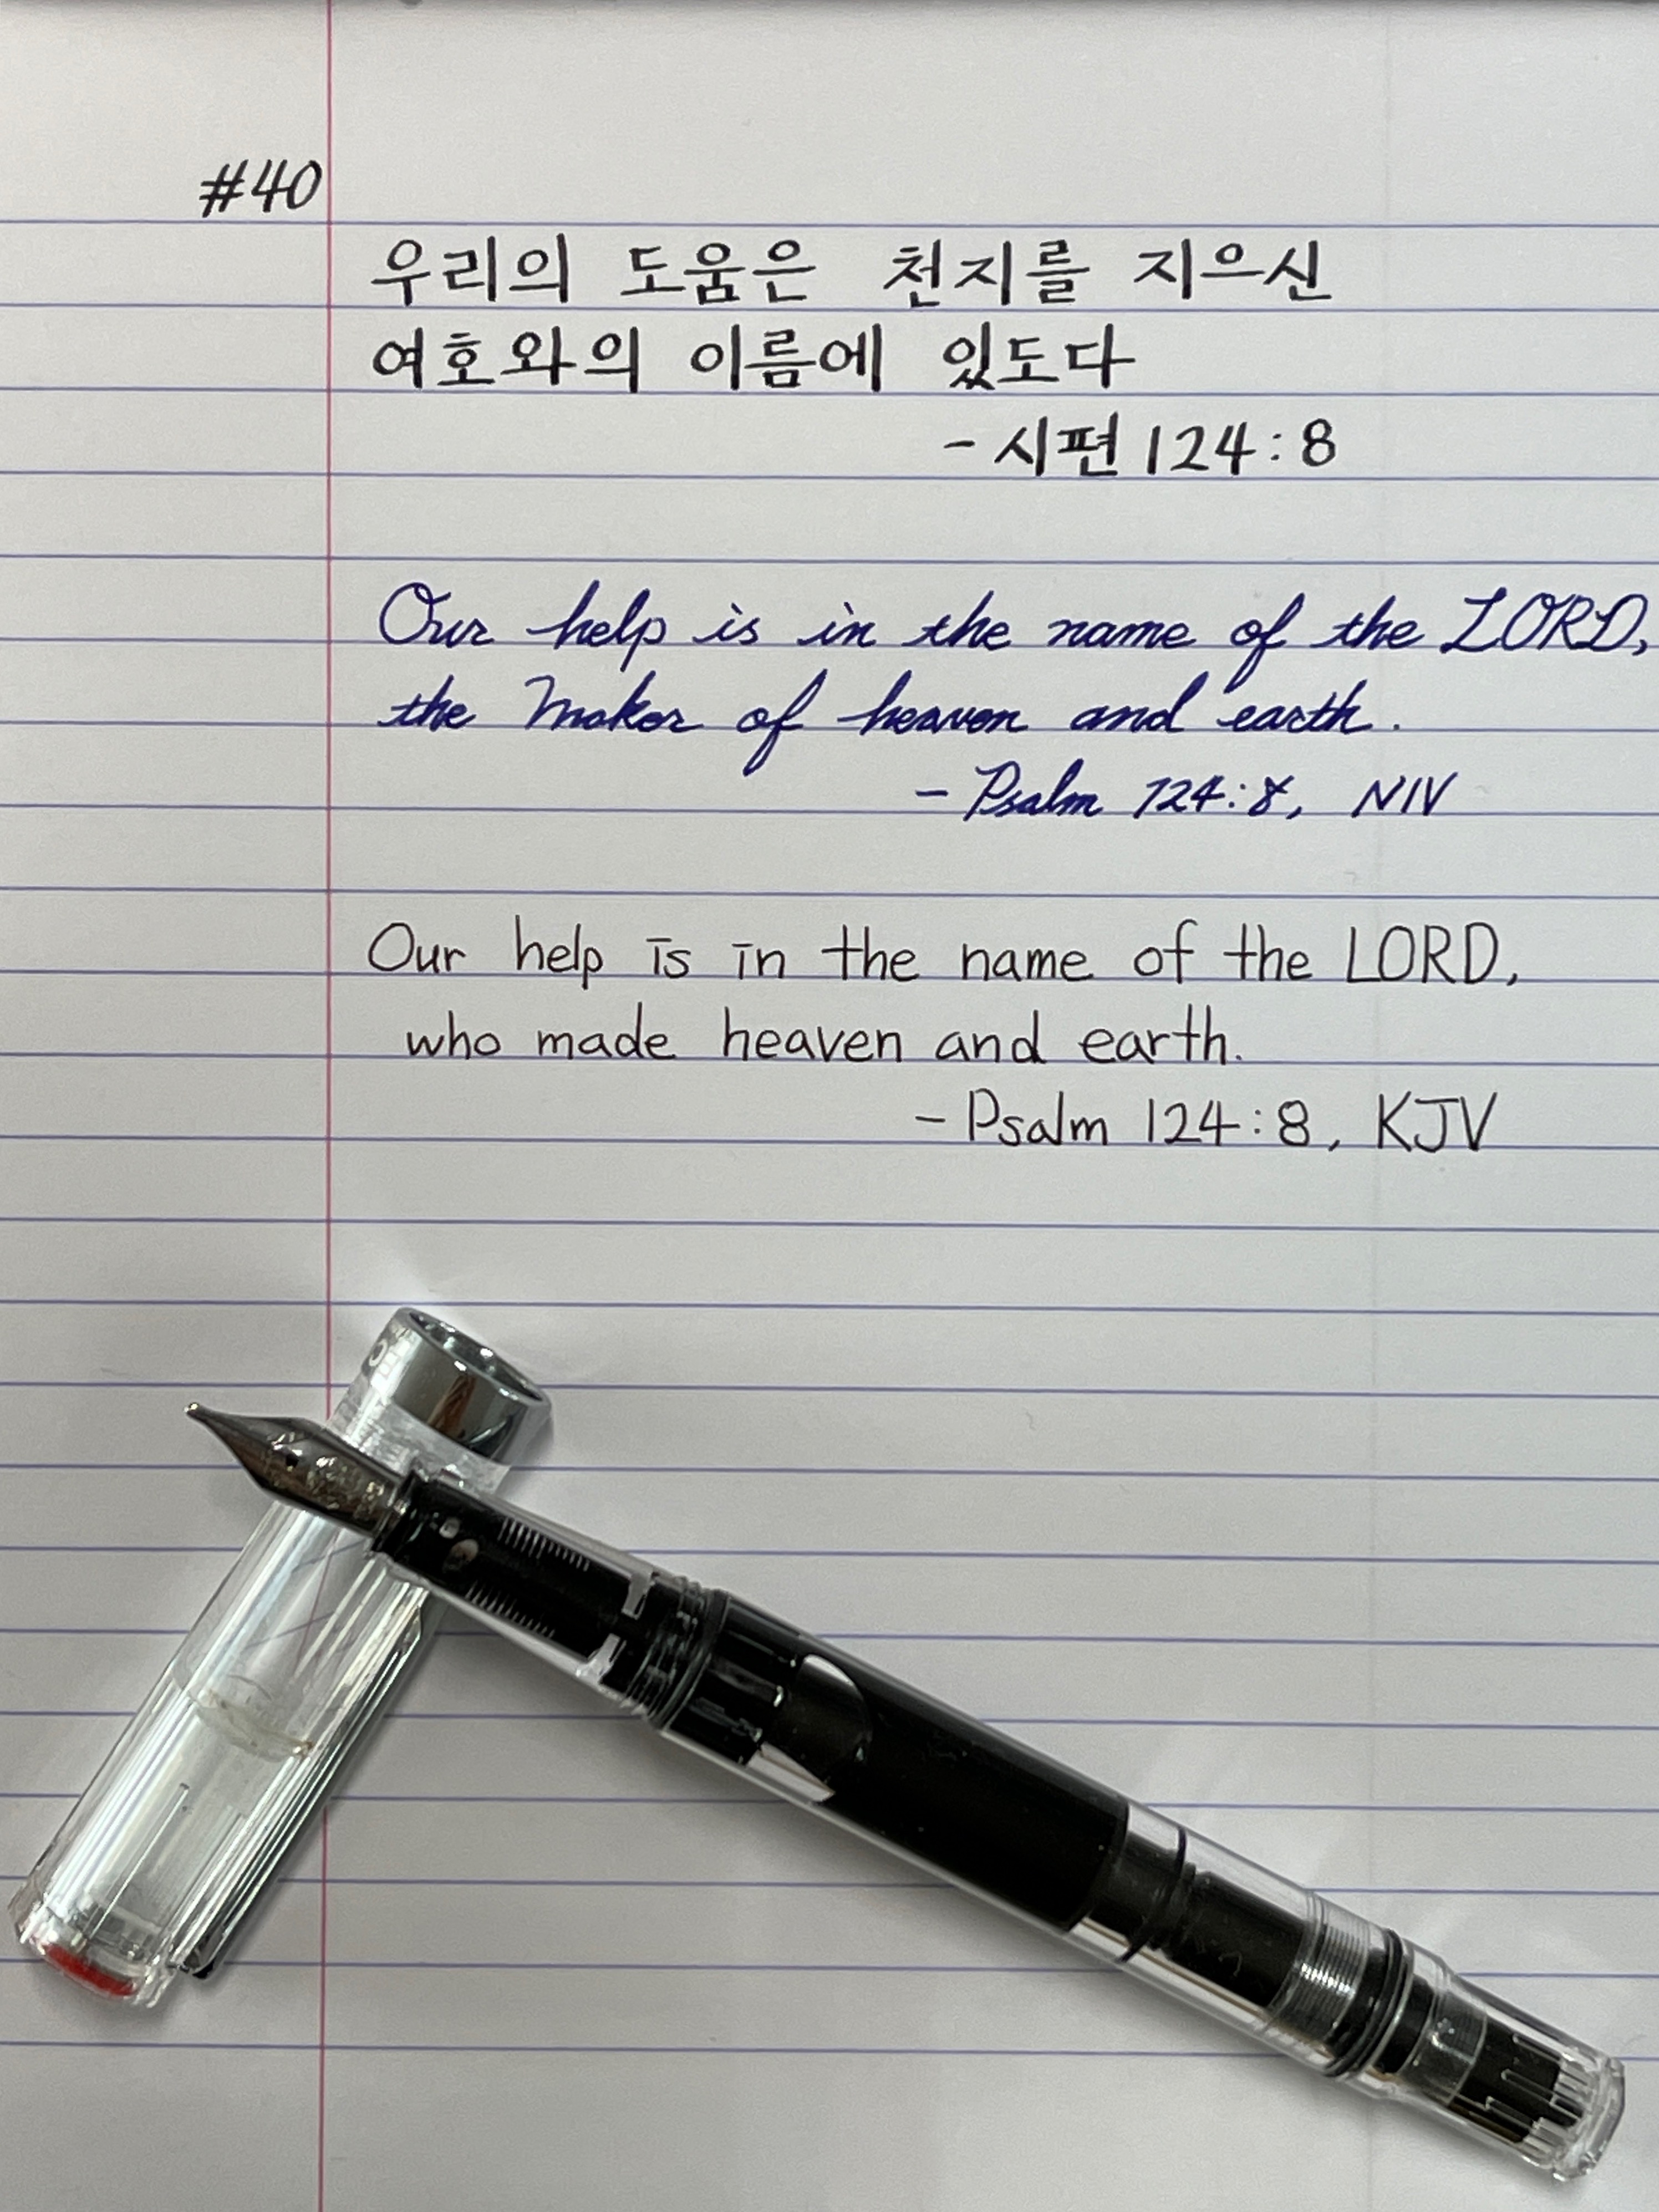 #40
우리의 도움은 천지를 지으신
여호와의 이름에 있도다
- 시편 124:8
Our help is in the name of the LORD,
the Maker of heaven and earth.
- Psalm 124:8, NIV
Our help is in the name of the LORD,
who made heaven and earth.
- Psalm 124:8, KJV